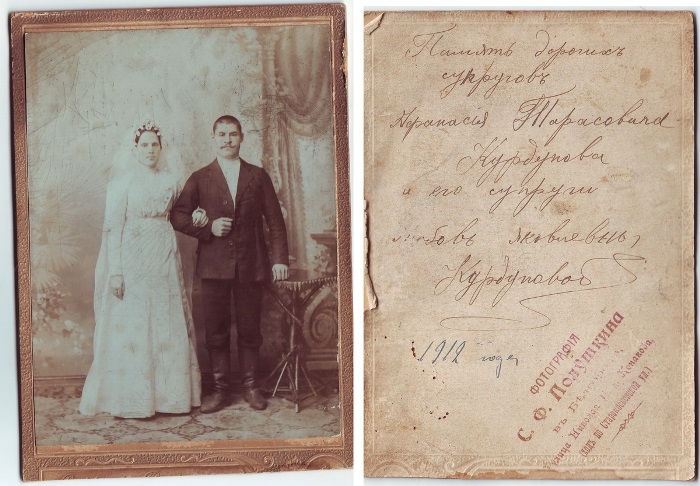 Память дорогихъ
супруговъ
Афанасія Тарасовича
Курдупова
и его супруги
Яковлевны
Курдуповой
1912 года
ФОТОГРАФІЯ
С. Ф. Полушкина
въ